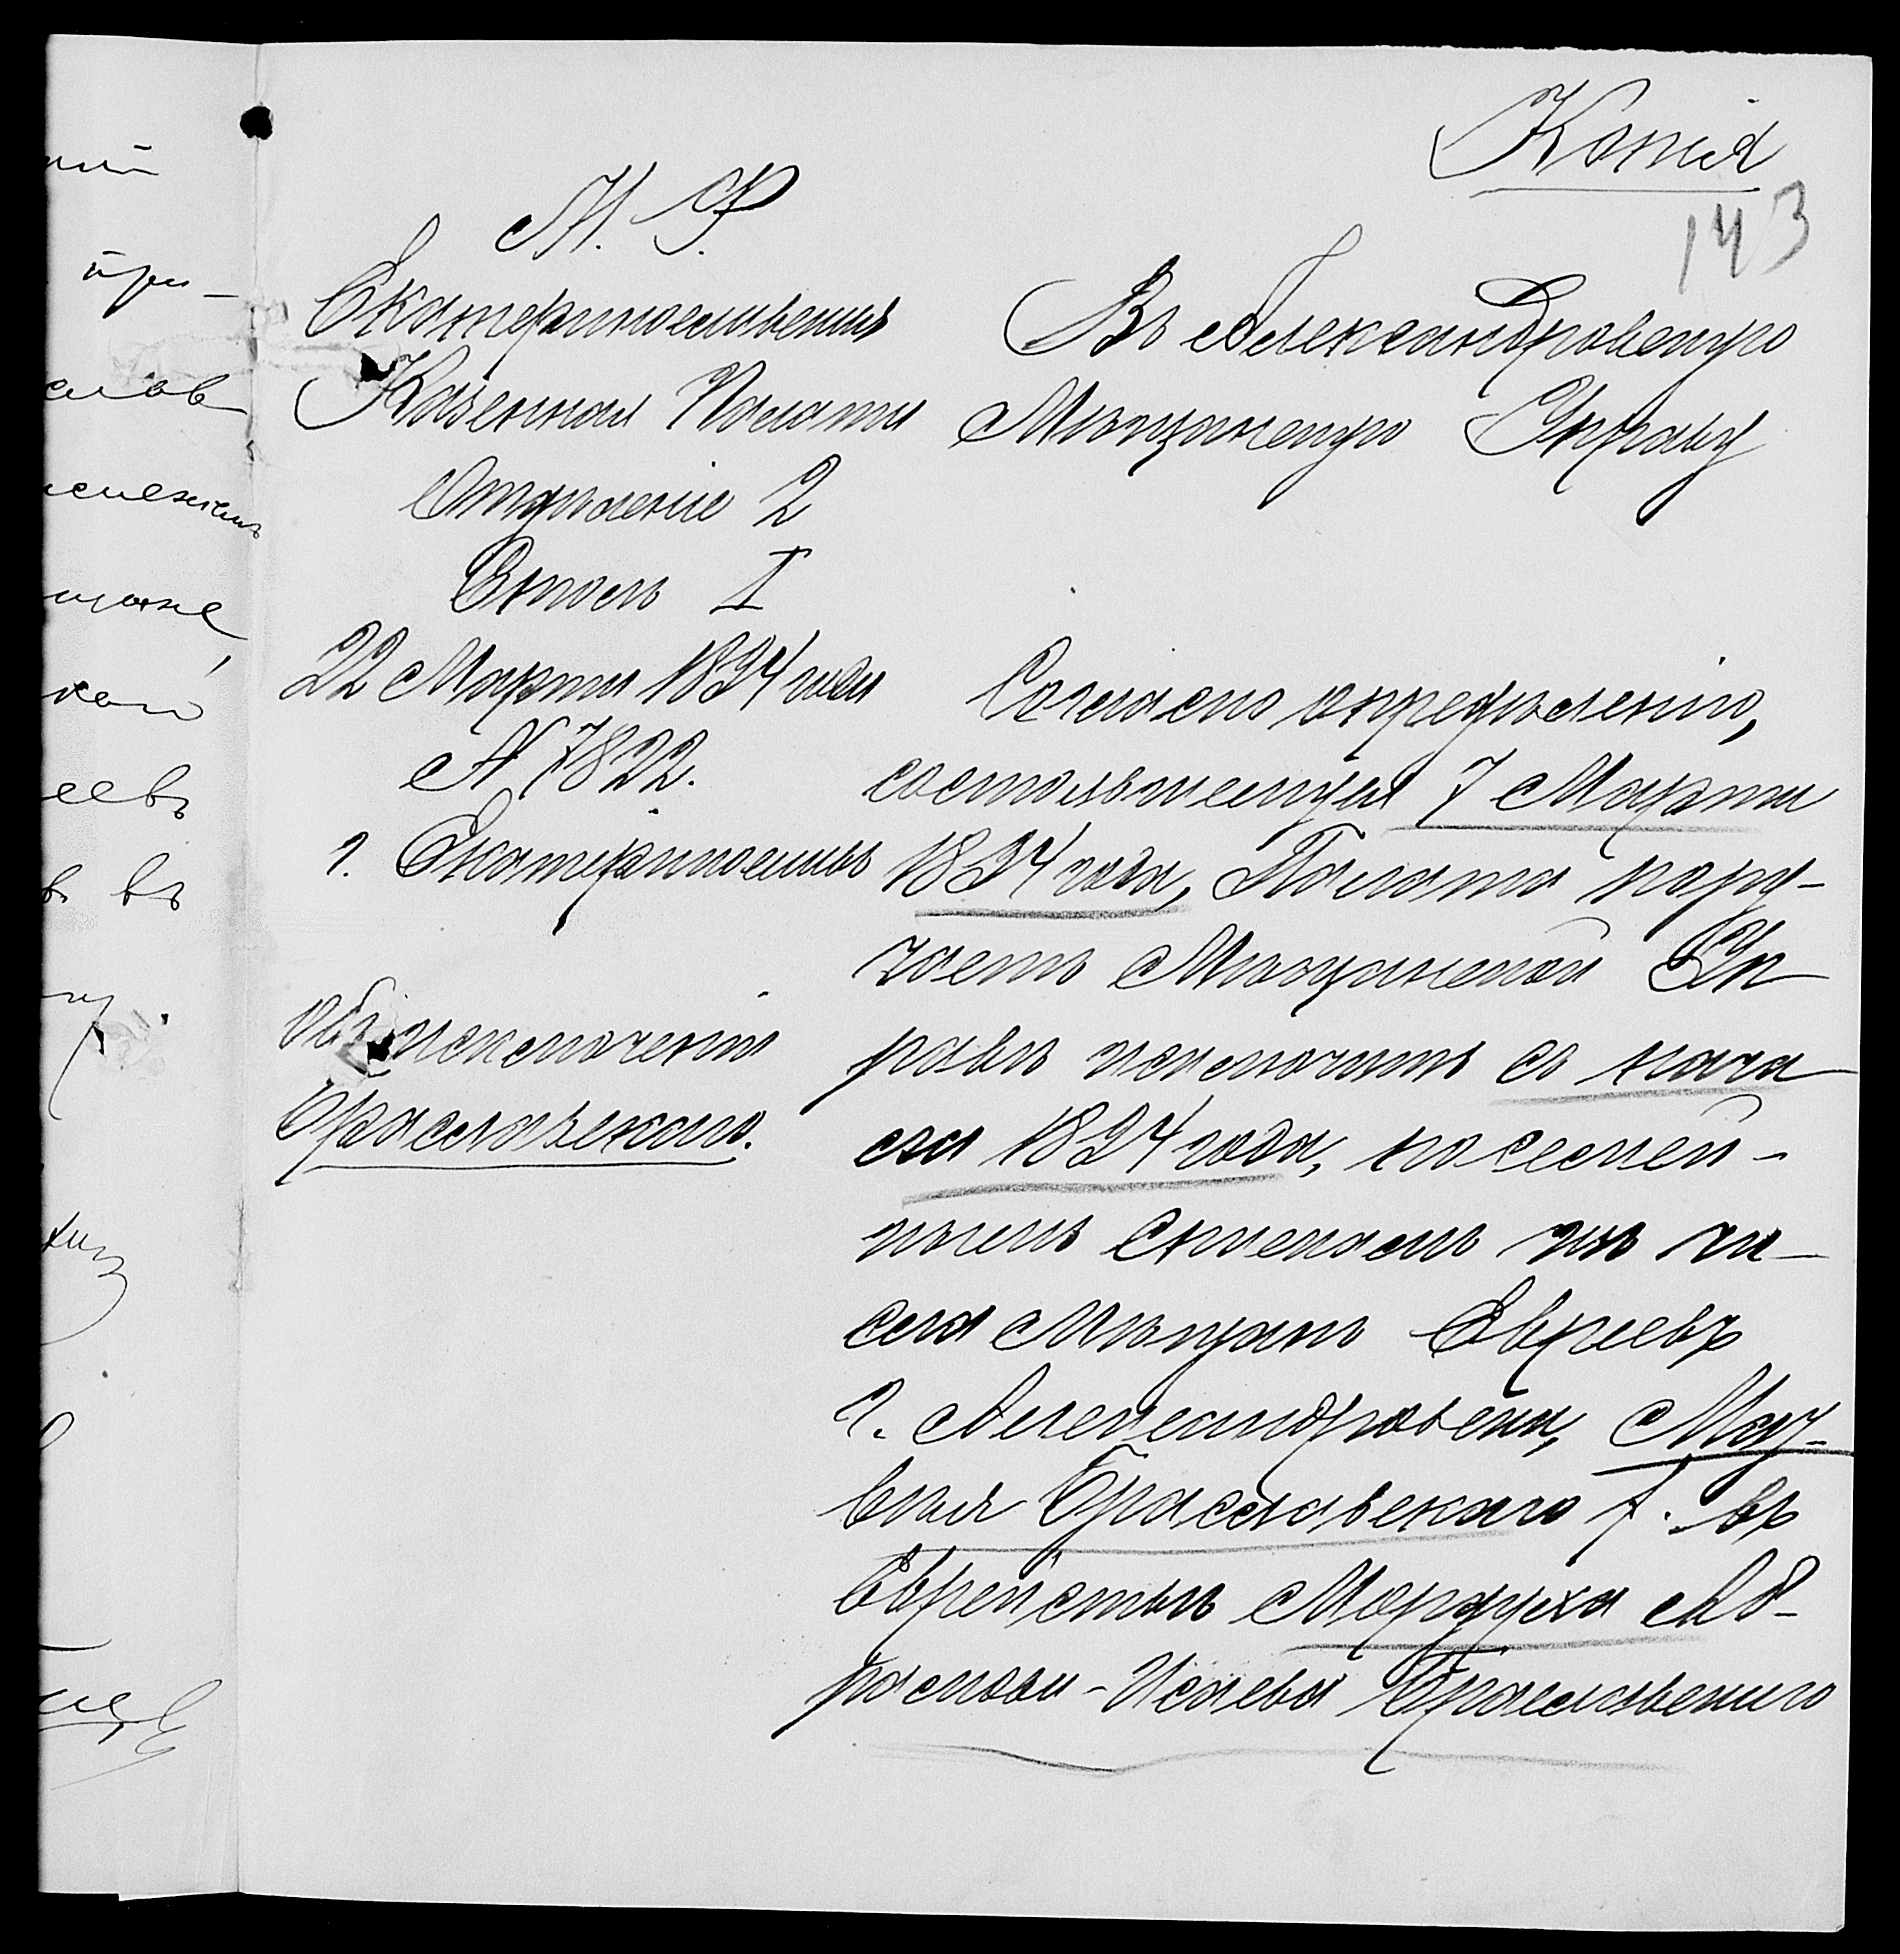 Копія
143
М. Ф.
Екатеринославская
Казенная Палата
Отдѣленіе 2
Столъ I
22 Марта 1894 года
№ 7822.
г. Екатеринославъ
Объ исключеніи
Браславскаго.
Въ Александровскую
Мѣщанскую Управу
Согласно опредѣленію,
состоявшемуся 7 Марта
1894 года, Палата пору-
чаетъ Мѣщанской Уп
равѣ исключить съ нача
ла 1894 года, по семей-
нымъ спискамъ изъ чи-
сла мѣщанъ Евреевъ
г. Александровска,
Браславскаго въ
Еврействѣ Мордуха Аб-
рамова-Исаева Браславскаго
при-
въ